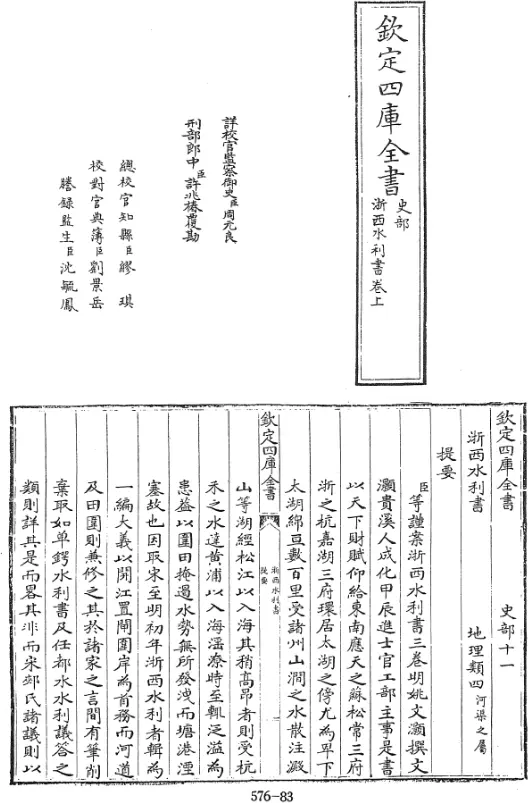 欽定四庫全書 史部
浙西水利書卷上
詳校官監察御史臣周元良
刑部郎中臣許兆椿覆勘
總校官知縣臣繆琪
校對官典簿臣劉景岳
謄錄監生臣沈毓鳳
欽定四庫全書 史部十一
浙西水利書 地理類四河渠之屬
提要
臣等謹案浙西水利書三卷明姚文灝撰文
灝貴溪人成化甲辰進士官工部主事是書
以天下財賦仰給東南應天之蘇松常三府
浙之杭嘉湖三府環居太湖之傍尤為卑下
太湖綿亘數百里受諸州山澗之水散注澱
欽定四庫全書
浙西水利書
提要
山等湖經松江以入海其稍高昂者則受杭
禾之水達黃浦以入海淫潦時至輒泛溢為
患蓋以圍田掩遏水勢無所發洩而塘港湮
塞故也因取宋至明初年浙西水利者輯為
一編大義以開江置閘圍岸為首務而河道
及田圍則兼修之其於諸家之言間有筆削
棄取如单鍔水利書及任都水水利議答之
類則詳其是而畧其非而宋郟氏諸議則以
576-83